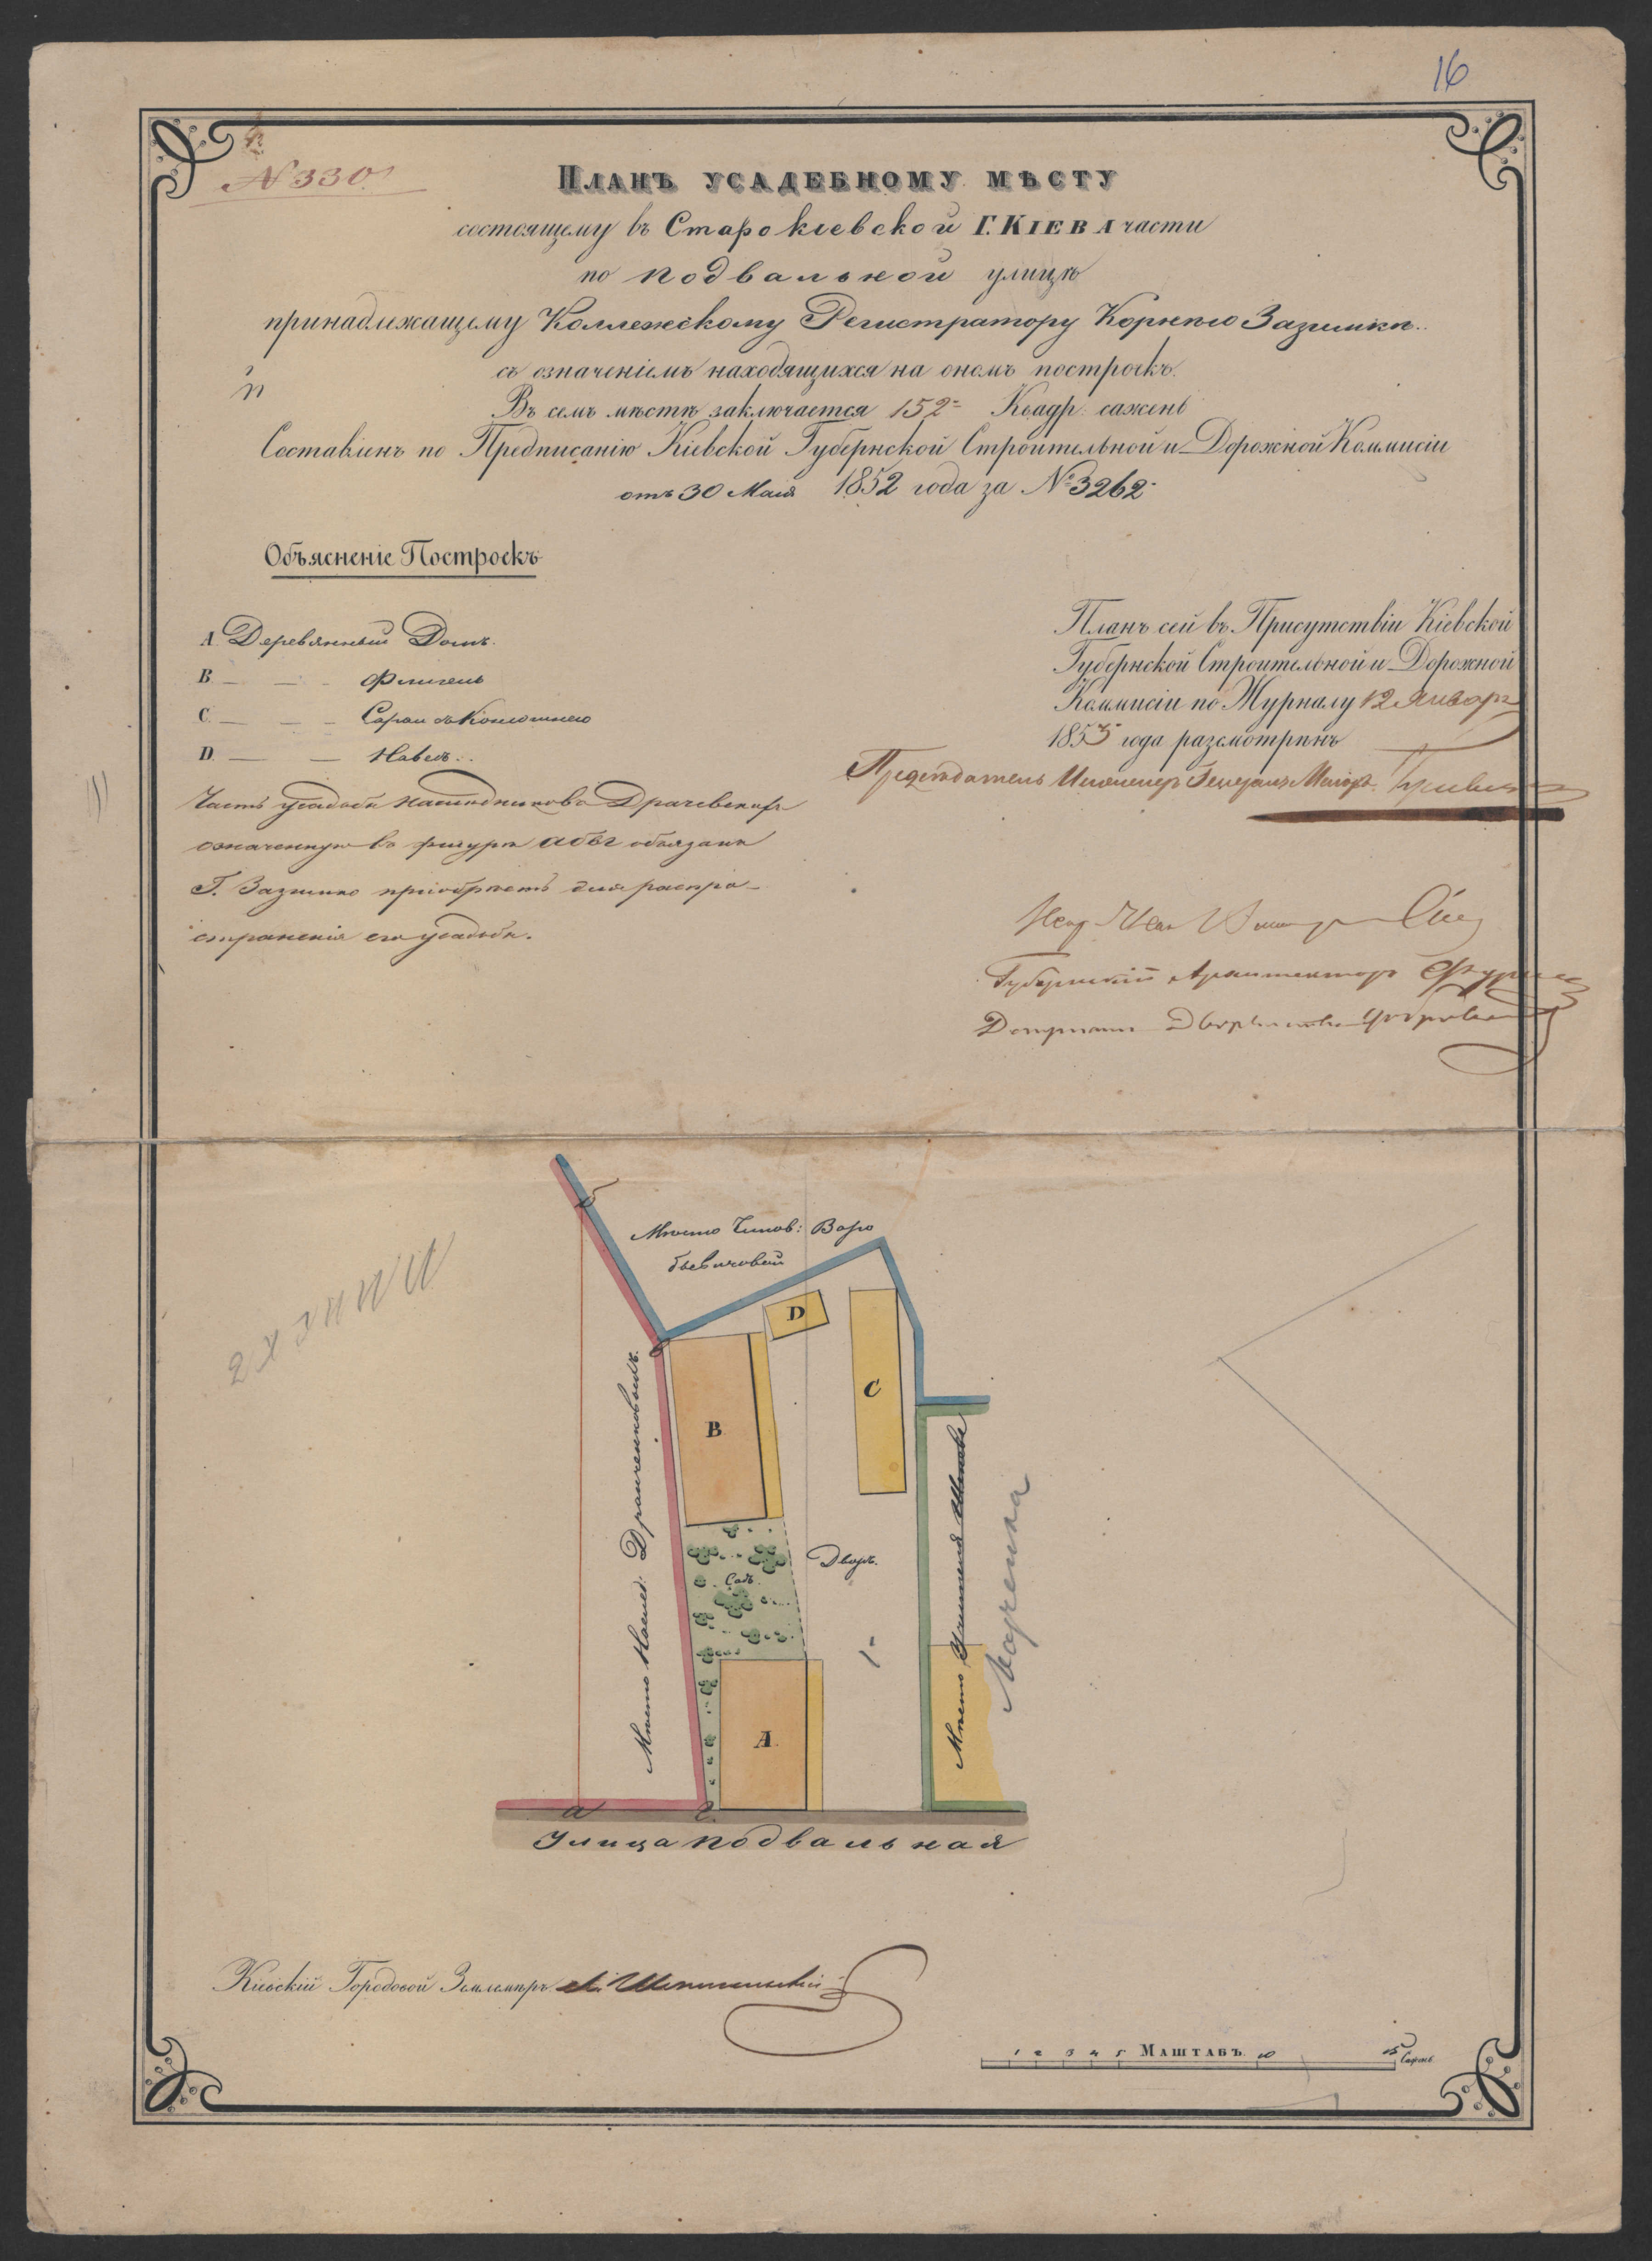 16
N 330
Планъ усадебному мѣсту
состоящему въ Старокіевской Г. Кіева части
по Подвальной улицѣ
принадлежащему Коллежскому Регистратору Корнѣю Зазимкѣ.
съ означеніемъ находящихся на ономъ построекъ.
Въ семъ мѣстѣ заключается 152 Квадр: сажень
Составленъ по Предписанію Кіевской Губернской Строительной и Дорожной Коммисіи
отъ 30 Маія 1852 года за № 3262
Объясненіе Построекъ
A. Деревянный Домъ.
B. — — Флигель
C. — — Сарай съ Конюшнею
D. — — Навесъ.
Часть усадьбы наследниковъ
означенную въ фигурѣ абвг обязанъ
Г. Зазимко пріобрѣсть для распро-
страненія его усадьбы.
Планъ сей въ Присутствіи Кіевской
Губернской Строительной и Дорожной
Коммисіи по Журналу 12 Января
1853 года разсмотрѣнъ
Председатель Инженеръ Генералъ Маіоръ
Губернскій Архитекторъ
Депутатъ Дворянства
б
Мѣсто Чинов: Воро
бьевичовой
в
D
C
B
Мѣсто Наслед:
Садъ.
Дворъ.
A.
Мѣсто
Марченка
а
г
Улица Подвальная
Кіевскій Городовой Землемѣръ
1 2 3 4 5 Маштабъ 10 15 Сажень